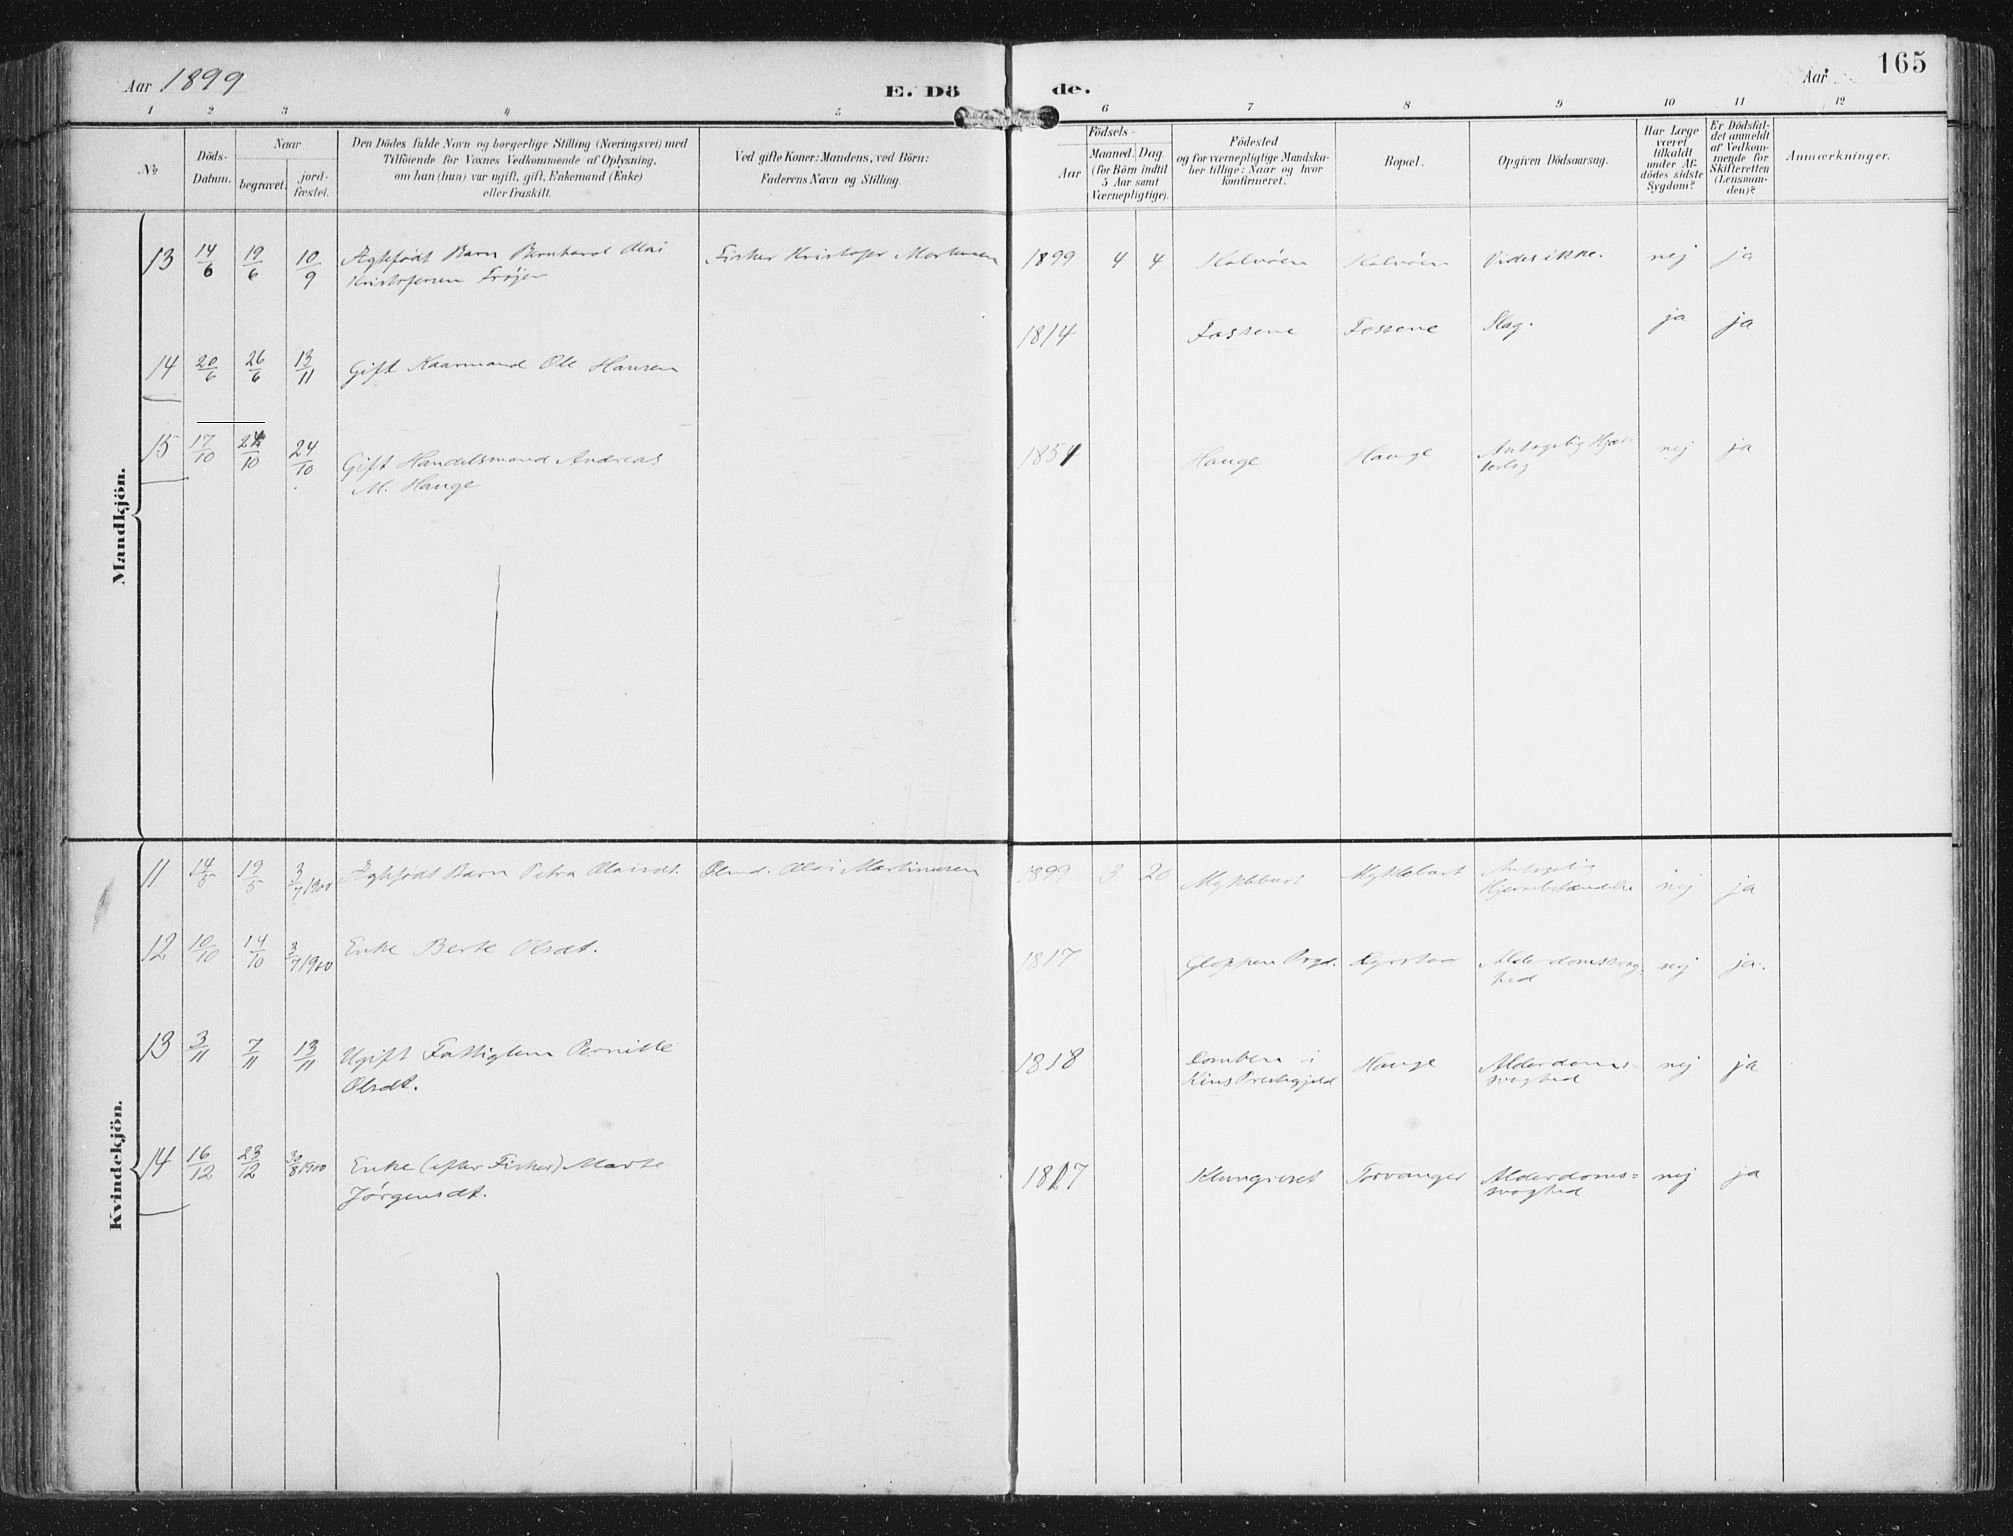 Aar 1899
E. Dö
de.
Aar
165
1 2 3 4 5 6 7 8 9 10 11 12
No
Döds-
Datum.
Naar
begravet.
jord-
fæstet.
Den Dödes fulde Navn og borgerlige Stilling (Næringsvei) med
Tilföiende for Voxnes Vedkommende af Oplysning,
om han (hun) var ugift, gift, Enkemand (Enke)
eller fraskilt.
Ved gifte Koner: Mandens, ved Börn:
Faderens Navn og Stilling.
Födsels-
Aar
Maaned. Dag
(for Börn indtil
5 Aar samt
Værnepligtige).
Födested
og for værnepligtige Mandska-
ber tillige: Naar og hvor
konfirmeret.
Bopæl.
Opgiven Dödsaarsag.
Har Læge
været
tilkaldt
under Af-
dödes sidste
Sygdom?
Er Dödsfal-
det anmeldt
af Vedkom-
mende for
Skifteretten
(Lensman-
den)?
Anmærkninger.
Mandkjön.
13 14/6 19/6 10/9 Ægtefødt Barn Bernhard Olai Fisker Kristofer Mortensen 1899 4 4 Kalvöen Kalvöen Vides ikke. nej ja
Kristofersen
14 20/6 26/6 13/11 Gift Kaarmand Ole Hansen 1814 Fossene Fossene Slag. ja ja
15 17/10 24/10 24/10 Gift Handelsmand Andreas 1851 Hauge Hauge Antagelig Hjer- nej ja
M. Hauge
Kvindekjön.
11 14/5 19/5 3/7 1900 Ægtefødt Barn Petra Olaisdt. Olai Martinusen 1899 3 20 Myklebust Myklebust Antagelig nej ja
Hjernebetændelse
12 10/10 14/10 3/7 1900 Enke Berte Olsdt. 1817 Gloppen Prgd. Alderdomssvag- nej ja.
hed
13 3/11 7/11 13/11 Ugift Fattiglem Pernille 1818 i Hauge Alderdoms- nej ja
Olsdt. Kins Prestegjeld svaghed
14 16/12 23/12 30/8 1900 Enke (efter Fisker) Marte 1817 Torvanger Alderdoms= nej ja
Jørgensdt. svaghed